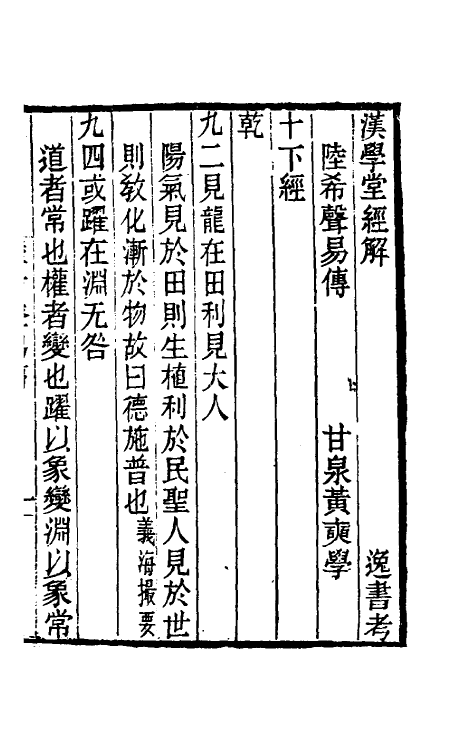 漢學堂經解　逸書考
陸希聲易傳　甘泉黃奭學
十下經
乾
九二見龍在田利見大人
陽氣見於田則生植利於民聖人見於世
則敎化漸於物故曰德施普也義海撮要
九四或躍在淵无咎
道者常也權者變也躍以象變淵以象常